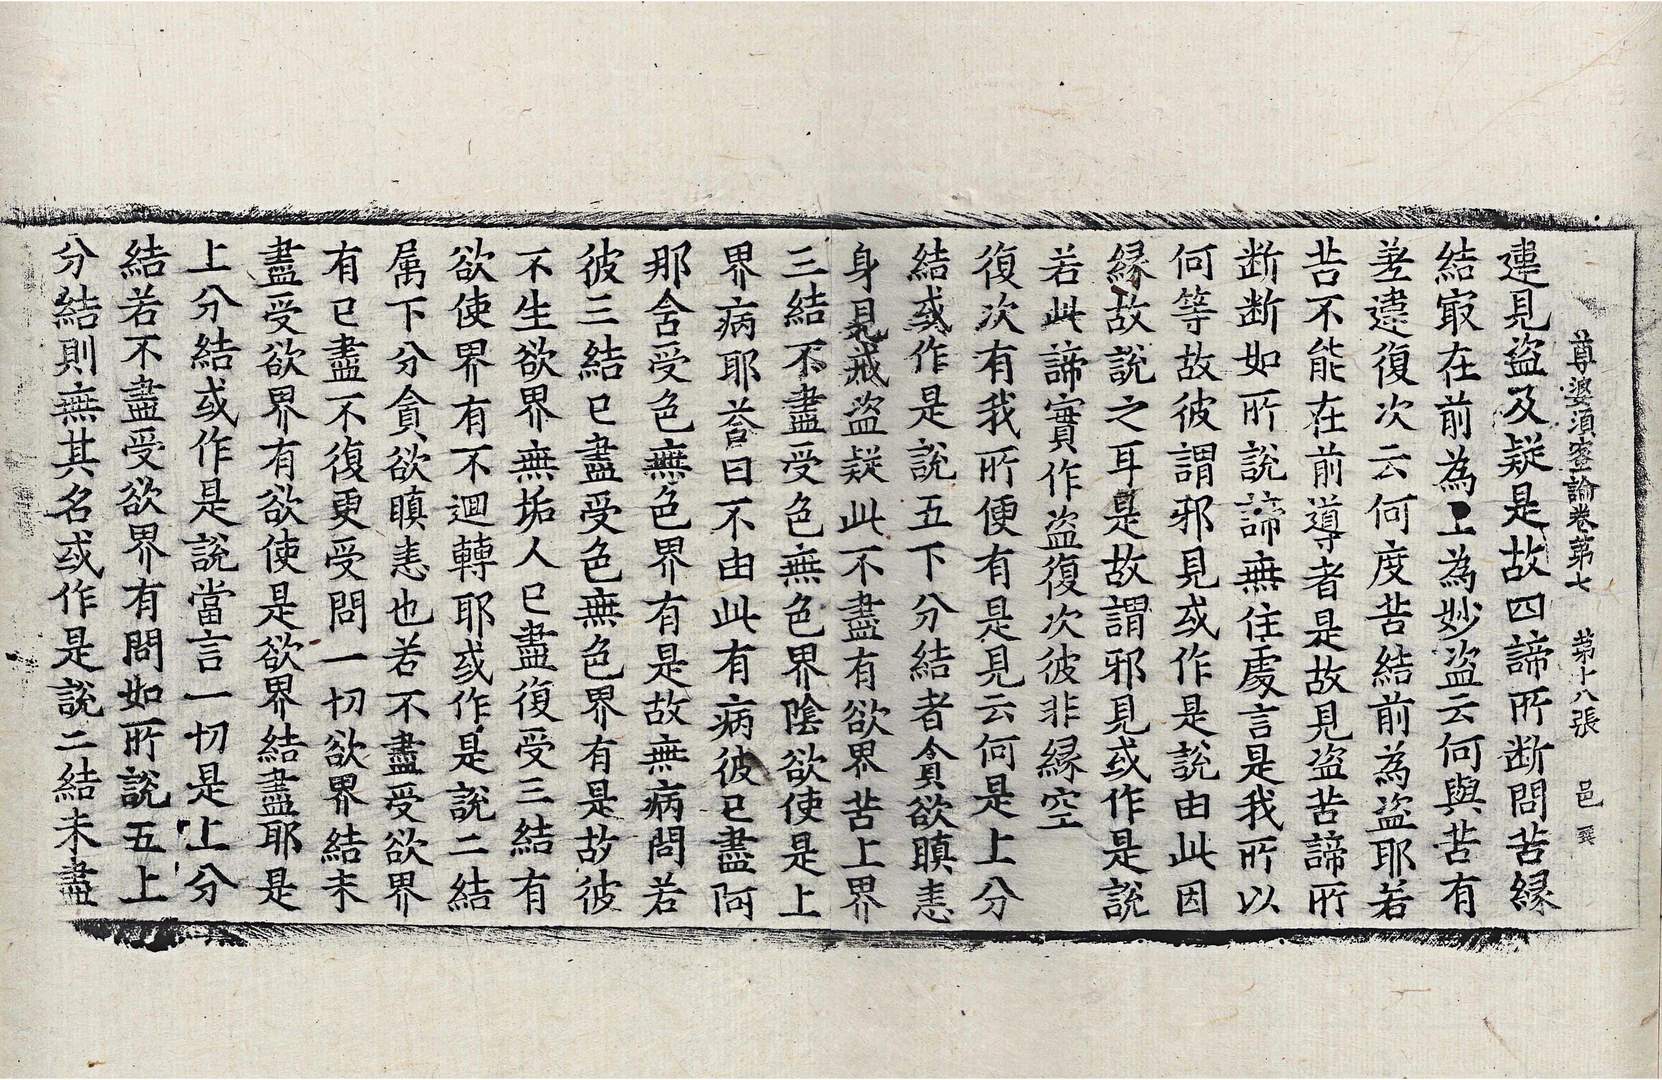 尊婆須蜜論卷第七 第十八張 邑
違見盜及疑是故四諦所断問苦縁
結㝡在前為上為妙盜云何與苦有
差違復次云何度苦結前為盜耶若
苦不能在前導者是故見盜苦諦所
断断如所說諦無住處言是我所以
何等故彼謂邪見或作是說由此因
縁故說之耳是故謂邪見或作是說
若此諦實作盜復次彼非縁空
復次有我所便有是見云何是上分
結或作是說五下分結者貪欲瞋恚
身見戒盜疑此不盡有欲界苦上界
三結不盡受色無色界陰欲使是上
界病耶荅曰不由此有病彼已盡阿
那含受色無色界有是故無病問若
彼三結已盡受色無色界有是故彼
不生欲界無垢人已盡復受三結有
欲使界有不迴轉耶或作是說二結
属下分貪欲瞋恚也若不盡受欲界
有已盡不復更受問一切欲界結未
盡受欲界有欲使是欲界結盡耶是
上分結或作是說當言一切是上分
結若不盡受欲界有問如所說五上
分結則無其名或作是說二結未盡